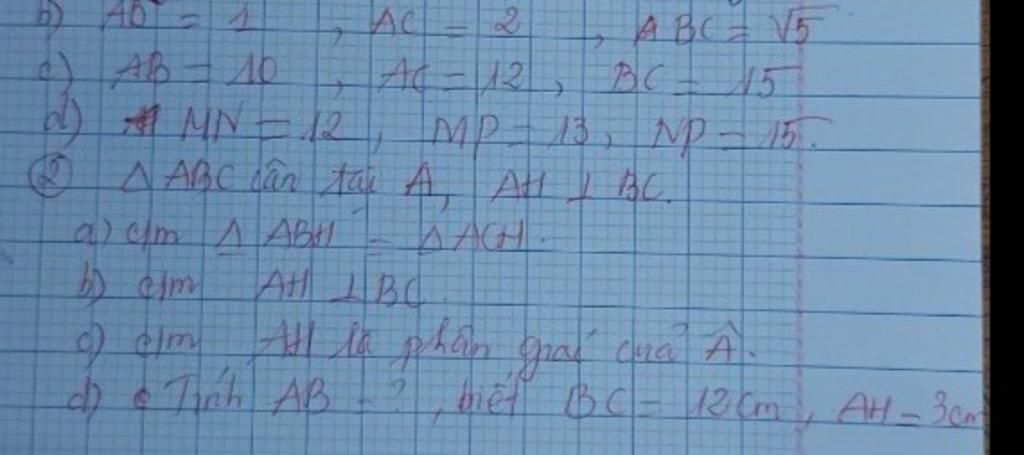 b) AB = 1 , AC = 2 , ABC = √5
c) AB = 10 , AC = 12 , BC = 15
d) MN = 12 , MP = 13 , NP = 15.
② Δ ABC cân tại A, AH ⊥ BC.
a) c/m Δ ABH = Δ ACH.
b) c/m AH ⊥ BC.
c) c/m AH là phân giác của Â.
d) Tính AB = ? , biết BC = 12cm, AH = 3cm